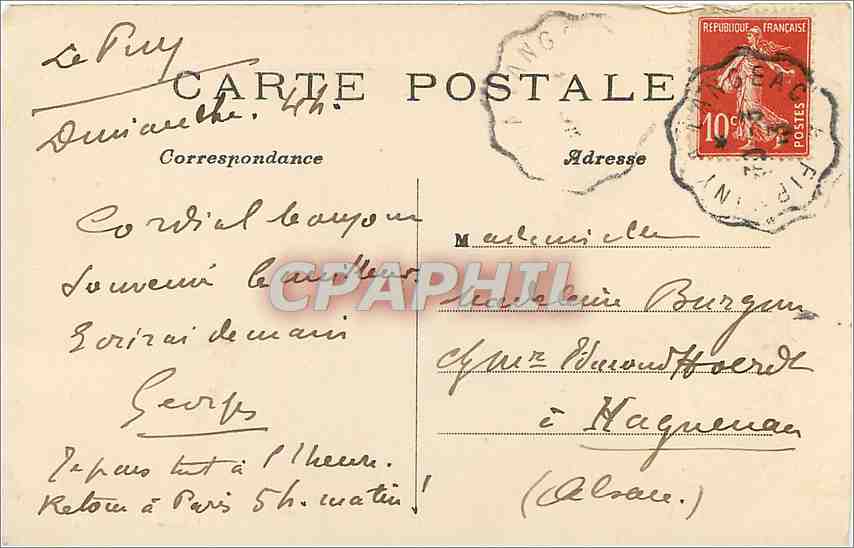 Le Puy
CARTE POSTALE
Dimanche. 4h.
Correspondance
Adresse
Cordial bonjour
Souvenir le meilleur.
Ecrirai demain
Georges
Je pars tout à l'heure.
Retour à Paris 5h. matin!
RÉPUBLIQUE FRANÇAISE
10c
POSTES
LANGEAC
FIRMINY
Mademoiselle
Madeleine Burgun
chez Mr Edmond Hoerdt
à Haguenau
(Alsace.)
CPAPHIL